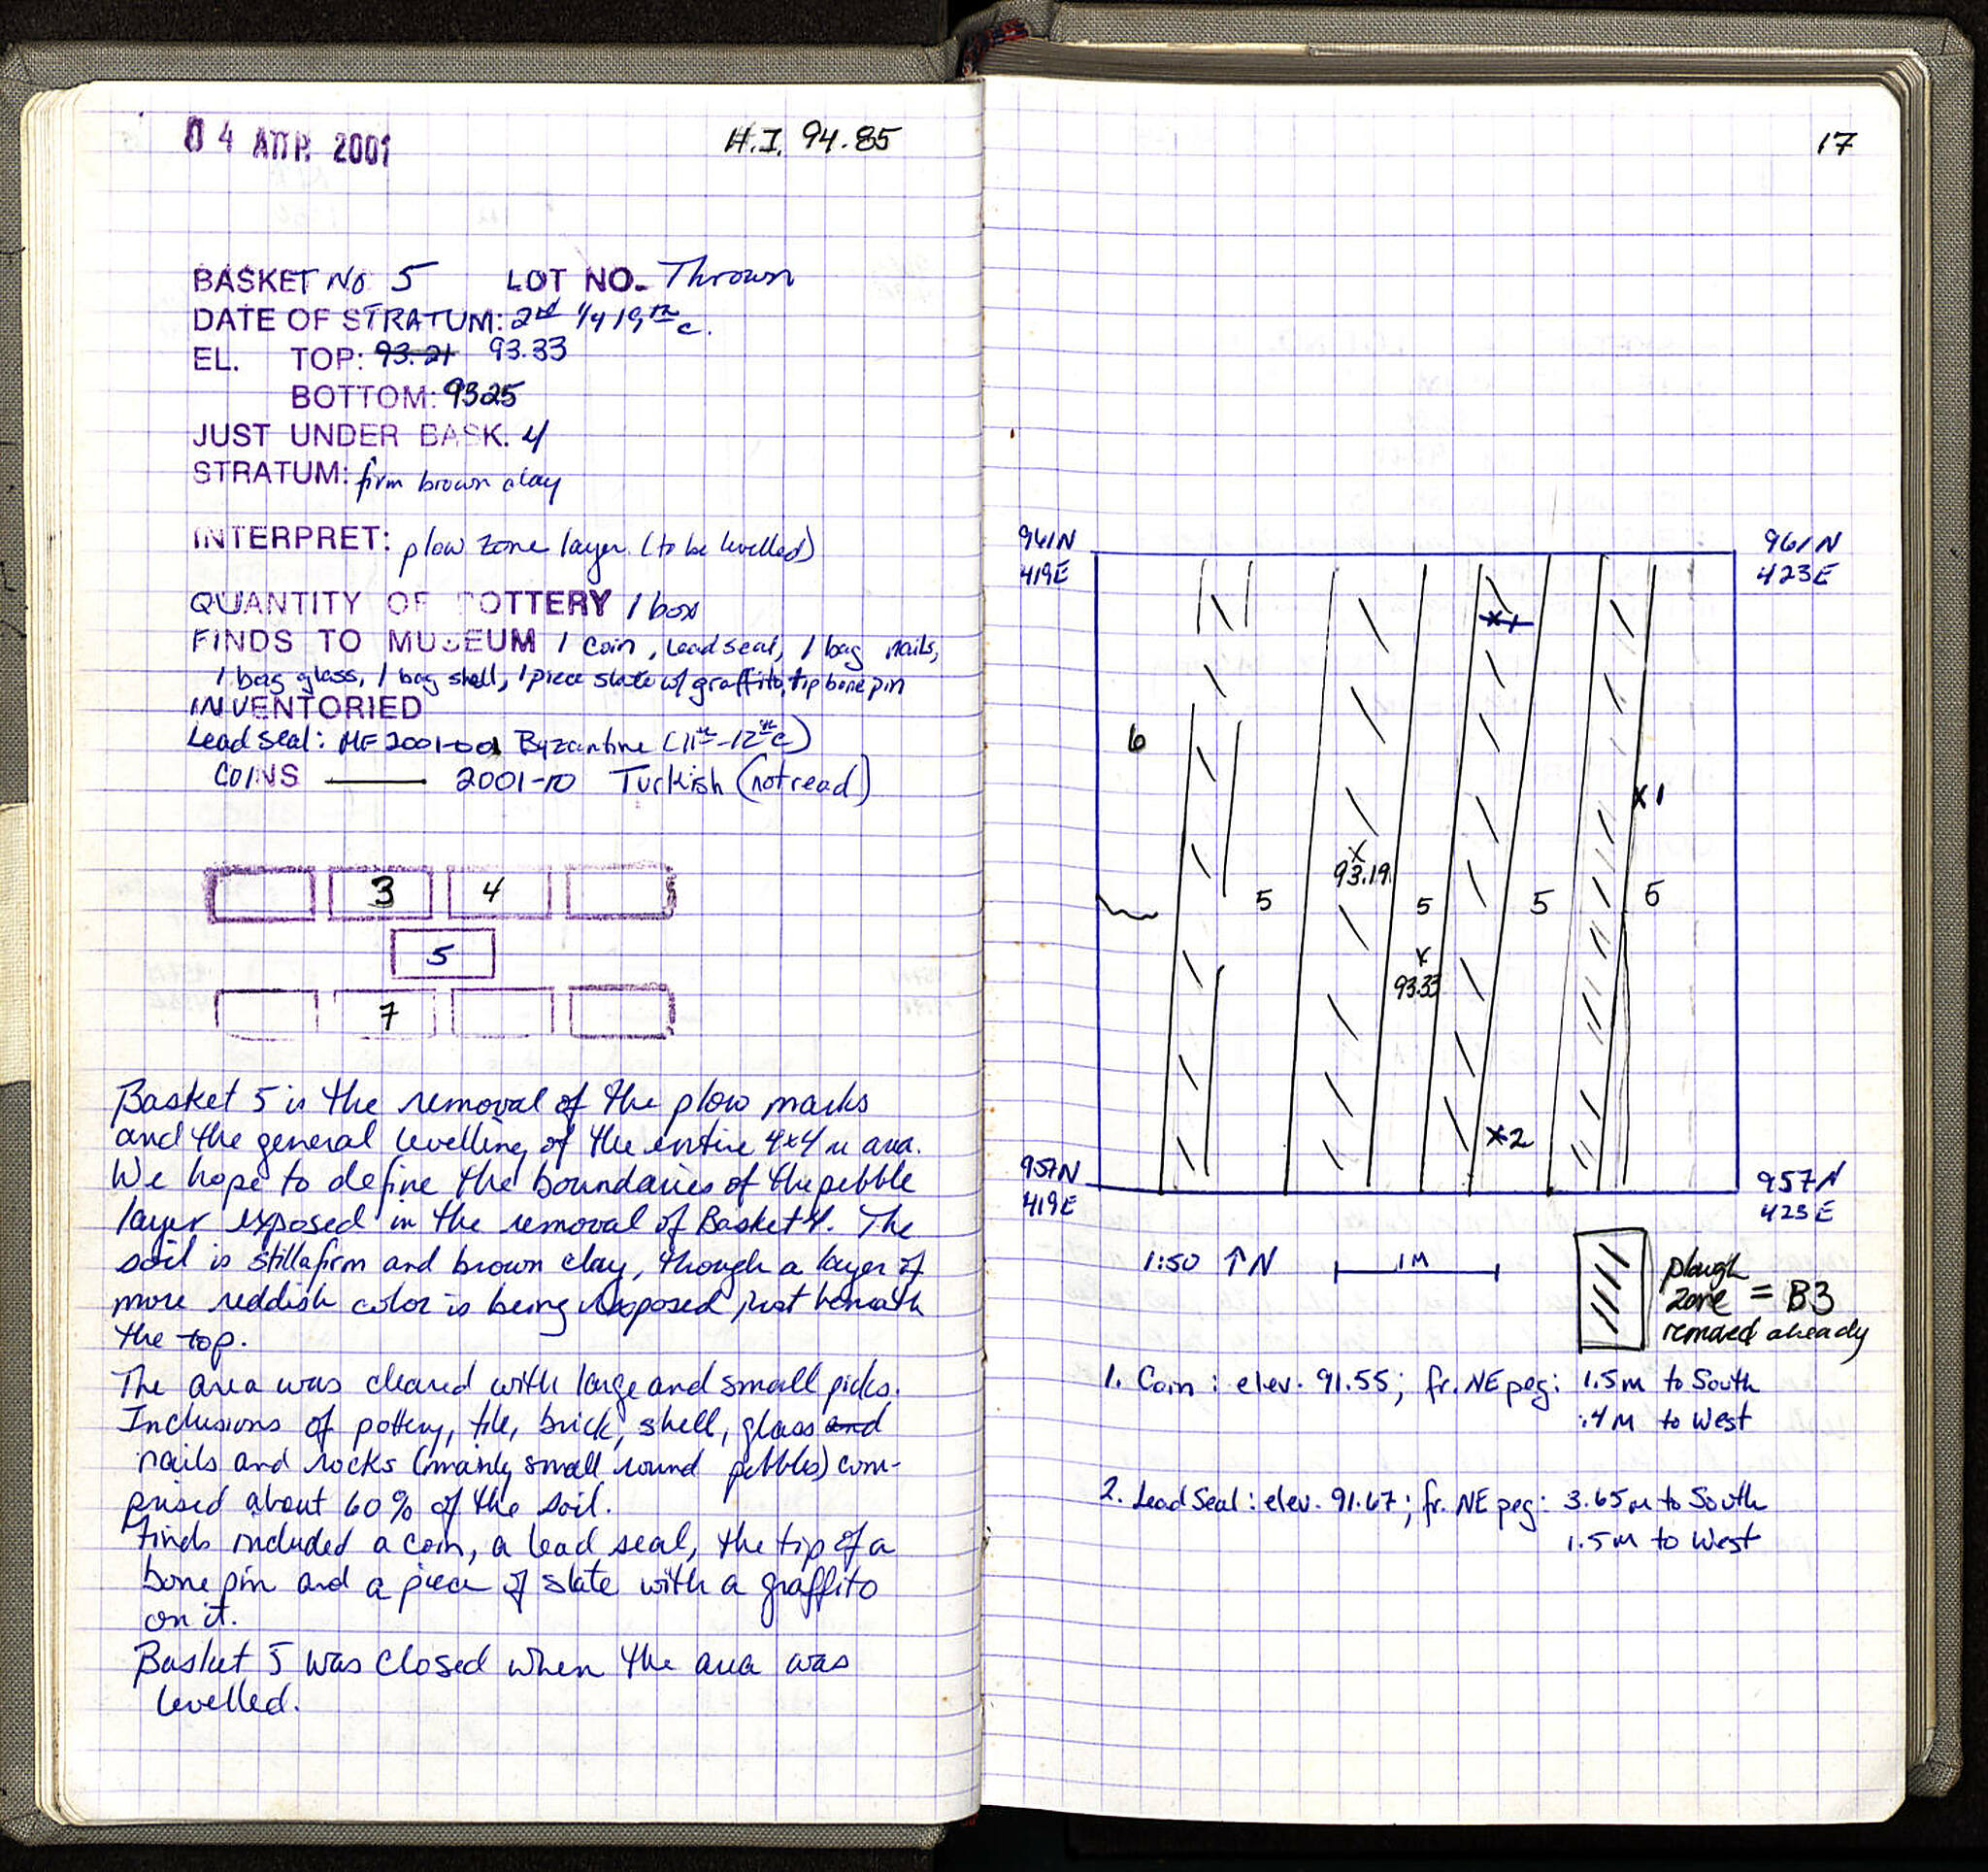 04 ΑΠΡ. 2001
H.I. 94.85
BASKET No 5 LOT NO. Thrown
DATE OF STRATUM: 2nd 1/4 19th c.
EL. TOP: 93.21 93.33
BOTTOM: 93.25
JUST UNDER BASK. 4
STRATUM: firm brown clay
INTERPRET: plow zone layer (to be levelled)
QUANTITY OF POTTERY 1 box
FINDS TO MUSEUM 1 coin, lead seal, 1 bag nails,
1 bag glass, 1 bag shell, 1 piece slate w/ graffito, tip bone pin
INVENTORIED
Lead seal: MF 2001-01 Byzantine (11th-12th c)
COINS 2001-10 Turkish (not read)
3 4
5
7
Basket 5 is the removal of the plow marks
and the general levelling of the entire 4x4 m area.
We hope to define the boundaries of the pebble
layer exposed in the removal of Basket 4. The
soil is still a firm and brown clay, though a layer of
more reddish color is being exposed just beneath
the top.
The area was cleared with large and small picks.
Inclusions of pottery, tile, brick, shell, glass and
nails and rocks (mainly small round pebbles) com-
prised about 60% of the soil.
Finds included a coin, a lead seal, the tip of a
bone pin and a piece of slate with a graffito
on it.
Basket 5 was closed when the area was
levelled.
17
961N
419E
961N
423E
x1
6
x1
x
93.19
5 5 5 5
x
93.33
x2
957N
419E
957N
423E
1:50 ↑N 1M
plough
zone = B3
removed already
1. Coin: elev. 91.55; fr. NE peg: 1.5m to South
.4m to West
2. Lead Seal: elev. 91.67; fr. NE peg: 3.65m to South
1.5m to West